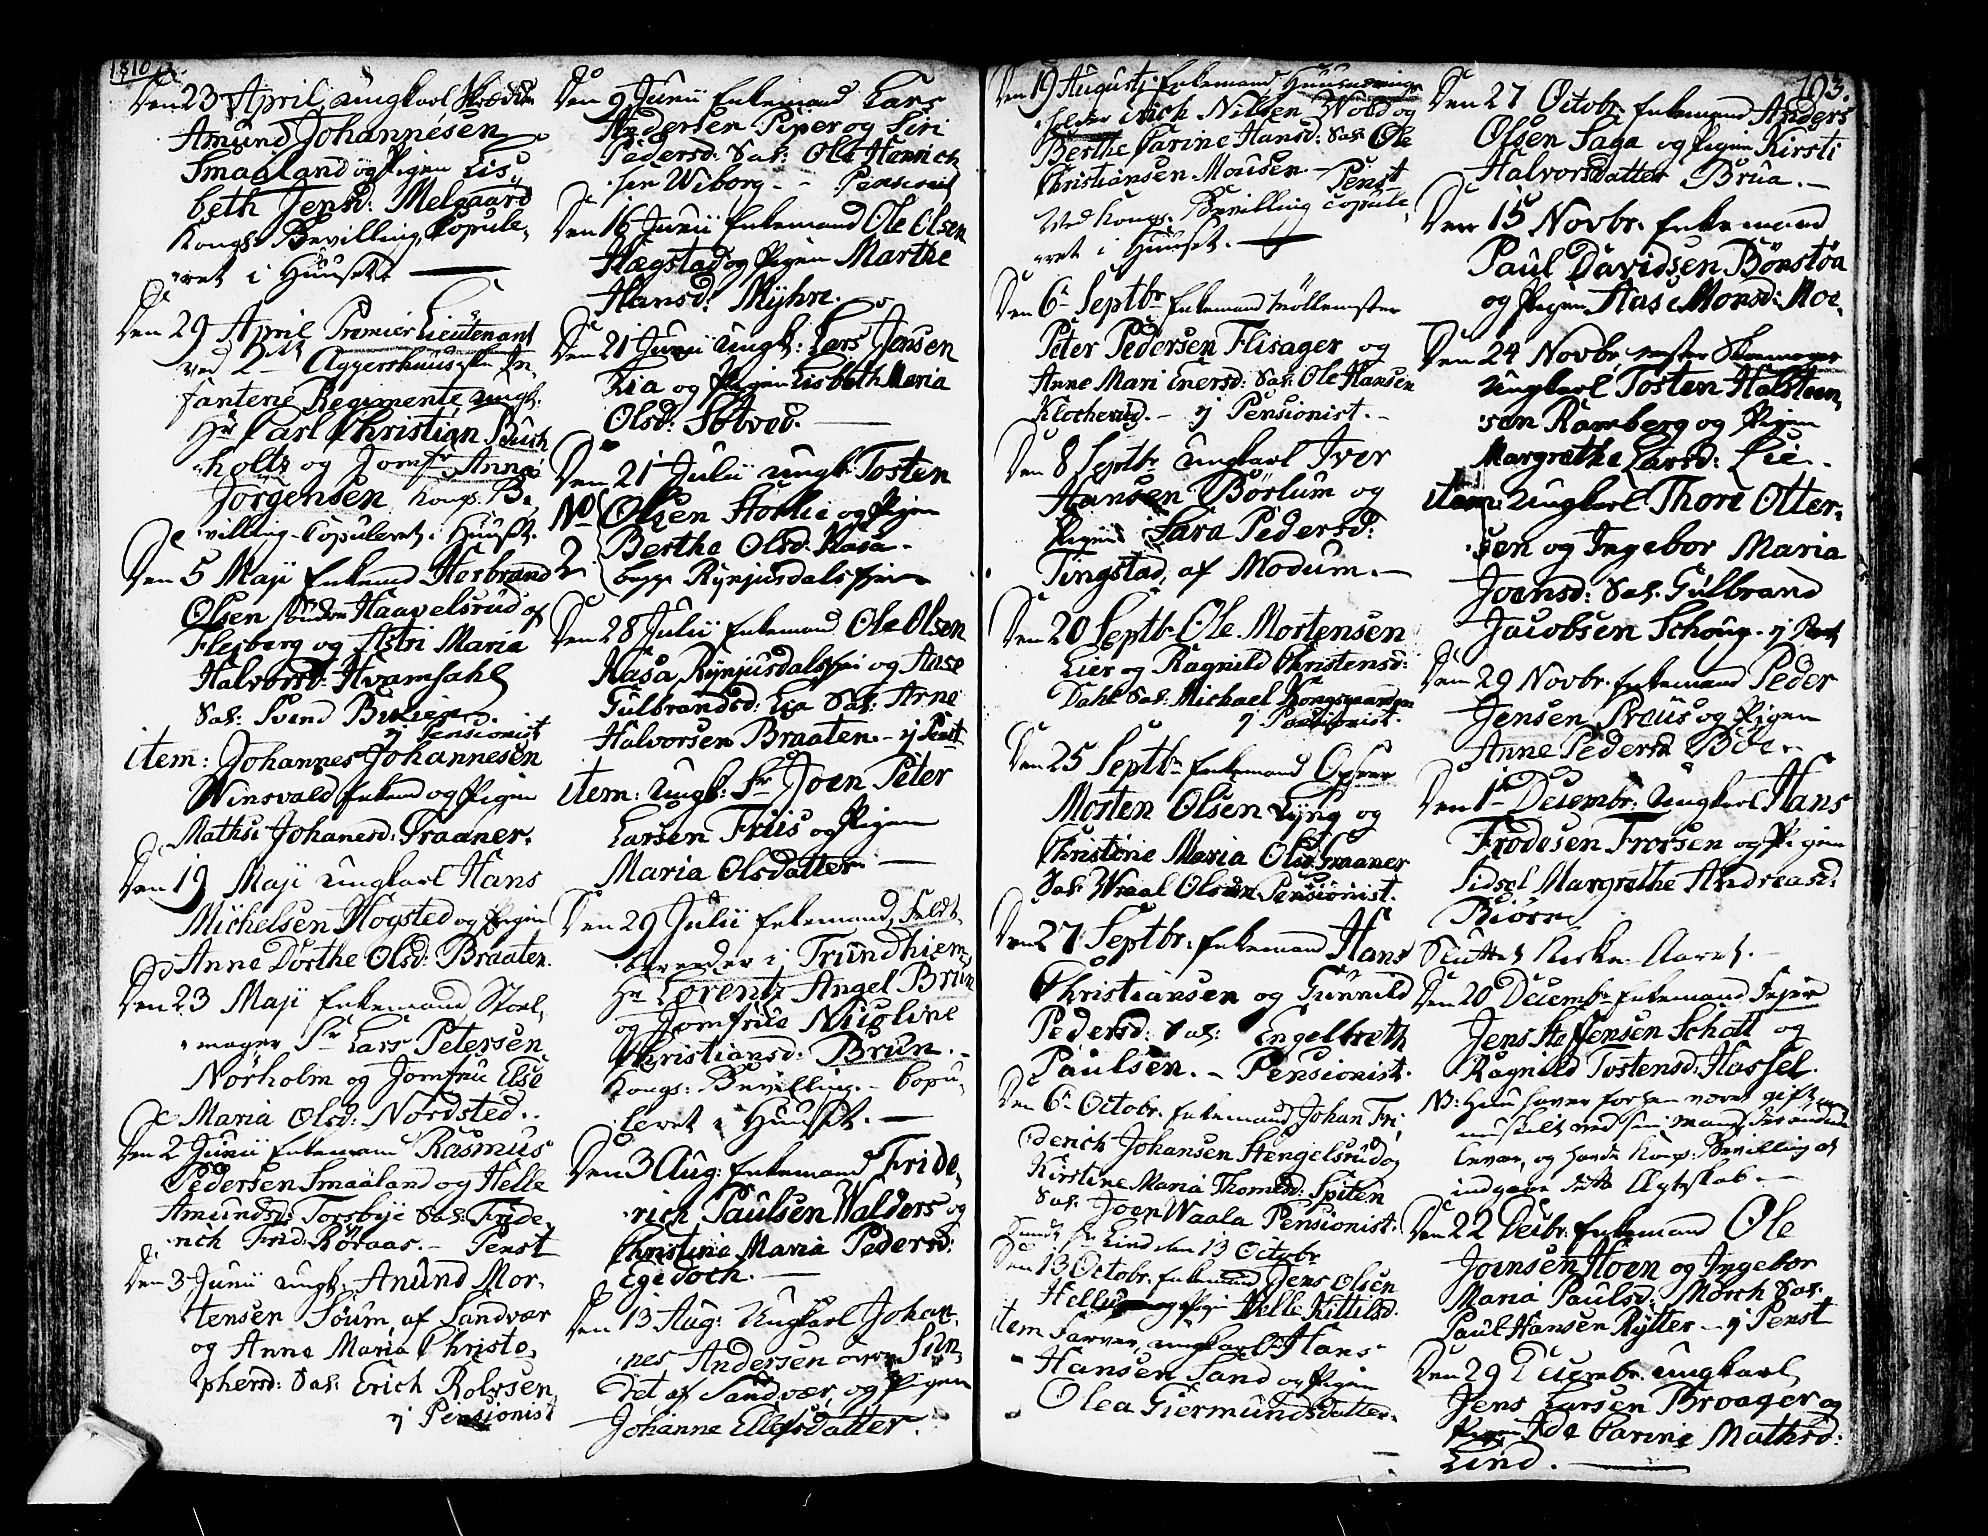 1810
Den 23 April Ungkarl
Amund Johannesen
Smaaland og Pigen Lis,,
beth Jensd: Melgaard
Kongs: Bevilling, Copule,
ret i Huuset.
Den 29 April Premier Lieutenant
ved 2det Aggershuusiske In,
fanterie Regimente, Ungk:
Hr Carl Christian Buch
holtz og Jomfr Anna
Jörgensen Kongs: Be,
villing. Copuleret i Huuset.
Den 5 Maji Enkemd Herbrand
Olsen söndre Haavelsrud af
Flesberg og Astri Maria
Halvorsd: Hvamsahl
Sal: Svend
ej Pensionist
item: Johannes Johannesen
Winsvald Enkemd og Pigen
Mathse Johanesd: Praaner.
Den 19 Maji Ungkarl Hans
Michelsen Wogsted og Pigen
Anne Dorthe Olsd: Braaten.
Den 23 Maji Enkemand Stoel,
mager Sr Lars Petersen
Nörholm og Jomfrue Else
Maria Olsd: Nordsted.
Den 2 Junii Enkemand Rasmus
Pedersen Smaaland og Helle
Amundsd: Torsbye Sal: Fride,
rich Frid: Röraas. Penst
Den 3 Junii Ungk: Anund Mor,
tensen Söum af Sandvær
og Anne Maria Christo,
phersd: Sal: Erich Rolvsen
ej Pensionist
Den 9 Junii Enkemand Lars
Andersen Piper og Siri
Pedersd: Sal: Ole Henrich
sen Wiborg - Pensionist
Den 16 Junii Enkemand Ole Olsen
Hægstad og Pigen Marthe
Hansd: Myhre.
Den 21 Junii Ungk: Lars Jensen
Lia og Pigen Lisbeth Maria
Olsd: Sötved.
Den 21 Julii Ungk: Tosten
No Olsen Hörlie og Pigen
2 Berthe Olsd. Kasa
begge Rynjusdals
Den 28 Julii Enkemand Ole Olsen
Kasa Rynjusdals og Aase
Gulbrandsd: Lia Sal: Arne
Halvorsen Braaten. ej Penst
item: Ungk: Sr Joen Peter
Larsen Friis og Pigen
Maria Olsdatter.
Den 29 Julii Enkemand, Feldt,
bereeder i Trundhiem
Hr Lorentz Angel Brun
og Jomfrue Nicoline
Christiansd: Brun.
Kongs: Bevilling. Copu,
leret i Huuset.
Den 3 Aug: Enkemand Fride,
rich Paulsen Walders og
Christine Maria Pedersd:
Egedoch.
Den 13 Aug: Ungkarl Johan,
nes Andersen over Sun,
det af Sandvær, og Pigen
Johanne Ellefsdatter.
Den 19 Augusti Enkemand,
Erich Nilsen Wold og
Berthe Carine Hansd: Sal: Ole
Christiansen Mousen - Penst
Ved Kongs. Bevilling Copule,
ret i Huuset.
Den 6te Septbr Enkemand Möllemster
Peter Pedersen Flisager og
Anne Mari Enersd: Sal: Ole Hansen
Klocherud. - ej Pensionist.
Den 8 Septbr Ungkarl Iver
Hansen Börlum og
Pigen Sara Pedersd:
Tingstad, af Modum.
Den 20 Septbr Ole Mortensen
Lier og Ragnild Christensd:
Dahl Sal: Michael
ej Pensionist.
Den 25 Septbr Enkemand
Morten Olsen Lyng og
Christine Maria Olsd: Praaner
Sal: Wraal Olsen Pensionist.
Den 27 Septbr: Enkemand Hans
Christiansen og Gunnild
Pedersd: Sal: Engelbreth
Paulsen. - Pensionist.
Den 6te Octobr. Enkemand Johan Fri,
derich Johansen Stengelsrud og
Kirstine Maria Thomesd: Spiten
Sal: Joen Waala Pensionist.
Lind den 13 Octobr
Den 13 Octobr. Enkemand Jens Olsen
og Pige Helle Kittilsd:
item Farver, Ungkarl Hans
Hansen Sand og Pigen
Olea Giermundsdatter.
103.
Den 27 Octobr. Enkemand Anders
Olsen Saga og Pigen Kirsti
Halvorsdatter Brua.
Den 15 Novbr. Enkemand
Paul Davidsen Bönstöa
og Pigen Aase Monsd: Moe.
Den 24 Novbr, mester Skomager
Ungkarl Tosten Halsteen,
sen Ramberg og Pigen
Margrethe Larsd: Lie.
item Ungkarl Thore Otter,
sen og Ingebor Maria
Joensd: Sal. Gulbrand
Jacobsen Schoug. ej Penst
Den 29 Novbr. Enkemand Peder
Jensen Preüs og Pigen
Anne Pedersd Böe.
Den 1te Decembr: Ungkarl Hans
Frodesen Frorsen og Pigen
Sidsel Margrethe Andreasd:
Biörn
Sluttet Kirke Aaret.
Den 20 Decembr Enkemand
Jens Steffensen Schatt og
Ragnild Tostensd: Hassel.
NB: Hun haver forhen været gift,
skilt ved sin mand,
og havde Kongs: Bevilling at
indgaae dette Ægteskab.
Den 22 Decbr. Enkemand Ole
Joensen Hoen og Ingebor
Maria Paulsd: Mörch Sal:
Paul Hansen Rytter - ej Penst
Den 29 Decembr. Ungkarl
Jens Larsen Broager og
Pigen Ide Carine Mathsd:
Lind.